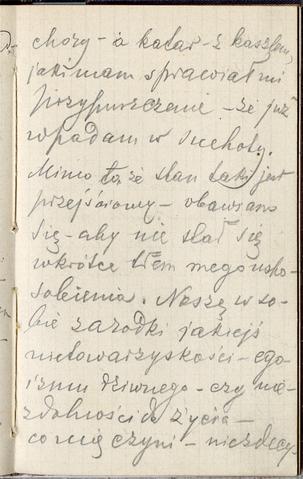 chory - a katar - z kaszlem,
jaki mam sprawiał mi
przypuszczenie - że już
wpadam w suchoty.
Mimo to, że stan taki jest
przejściowy - obawiam
się - aby nie stał się
wkrótce tłem mego uspo-
sobienia. Noszę w so-
bie zarodki jakiejś
nietowarzyskości - ego-
izmu dziwnego - czy nie-
zdolności do życia -
co mię czyni - niezdecy-